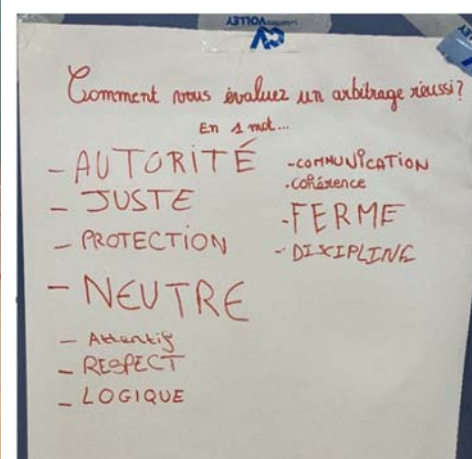 VOLLEY
Comment vous évaluez un arbitrage réussi?
En 1 mot...
- AUTORITÉ
- JUSTE
- PROTECTION
- NEUTRE
- Attentif
- RESPECT
- LOGIQUE
- COMMUNICATION
- Cohérence
- FERME
- DISCIPLINE